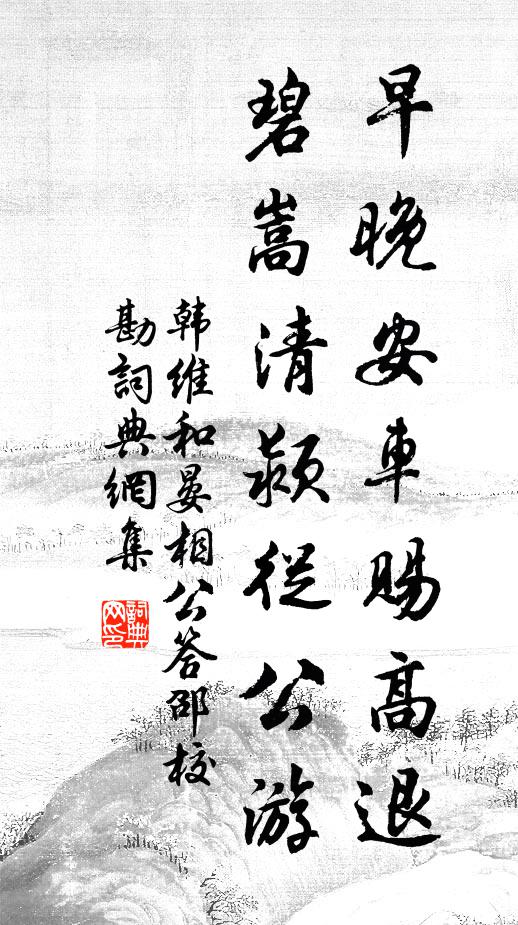 早晚安車賜高退
碧嵩清潁從公游
韩維和晏相公答邵校
勘詞典網集
詞典
网印